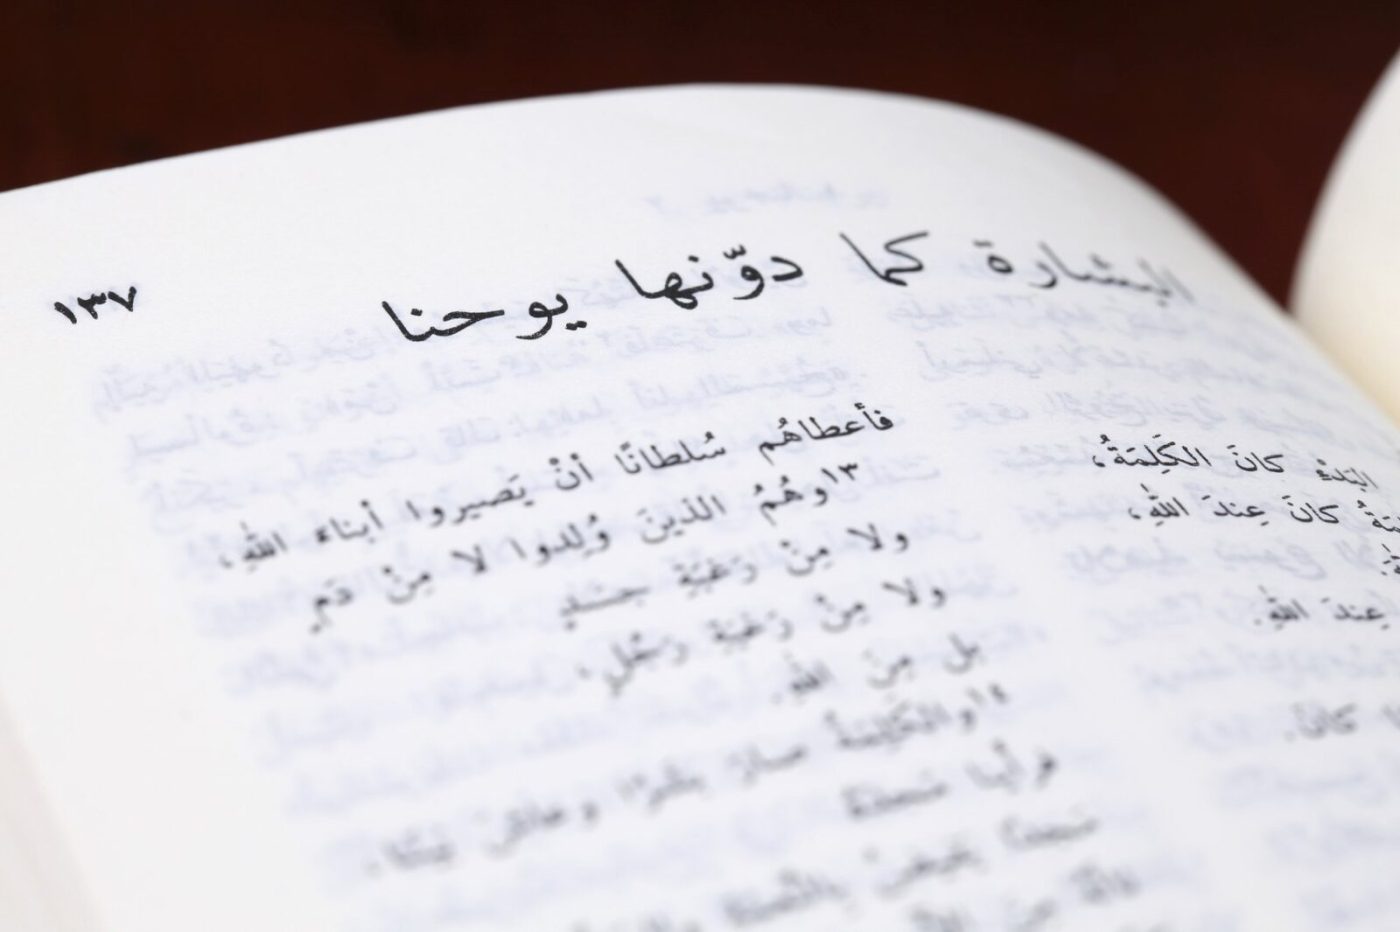 ١٣٧
البشارة كما دوّنها يوحنا
البَدْءِ كانَ الكَلِمَةُ،
كانَ عِندَ اللهِ،
عِندَ اللهِ.
كانَ.
فأعطاهُم سُلطانًا أنْ يَصيروا أبناءَ اللهِ،
١٣وهُمُ الذينَ وُلِدوا لا مِنْ دَمٍ
ولا مِنْ رَغبَةِ جسَدٍ
ولا مِنْ رَغبَةِ رَجُلٍ،
بل مِنَ اللهِ.
١٤والكَلِمَةُ صارَ بشَرًا وعاشَ بَينَنا،
فرأينا مَجدَهُ